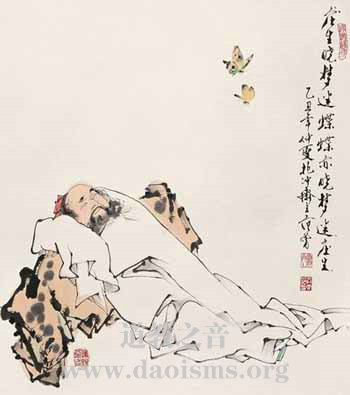 庄生晓梦迷蝶蝶亦晓梦迷庄生
乙丑年仲夏抱冲斋主范曾
道教之音
www.daoisms.org